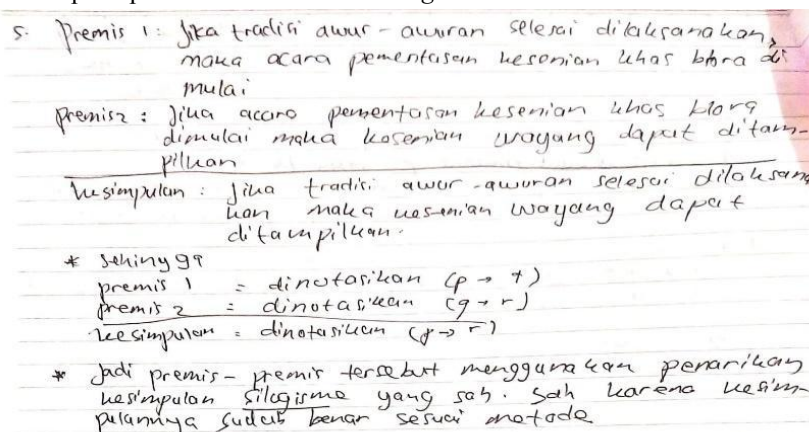 5. Premis 1 : Jika tradisi awur-awuran selesai dilaksanakan,
maka acara pementasan kesenian khas blora di
mulai
premis 2 : Jika acara pementasan kesenian khas blora
dimulai maka kesenian wayang dapat ditam-
pilkan
kesimpulan : Jika tradisi awur-awuran selesai dilaksana
kan maka kesenian wayang dapat
ditampilkan.
* Sehingga
premis 1 = dinotasikan (p → q)
premis 2 = dinotasikan (q → r)
kesimpulan = dinotasikan (p → r)
* Jadi premis-premis tersebut menggunakan penarikan
kesimpulan silogisme yang sah. Sah karena kesim-
pulannya sudah benar sesuai metode